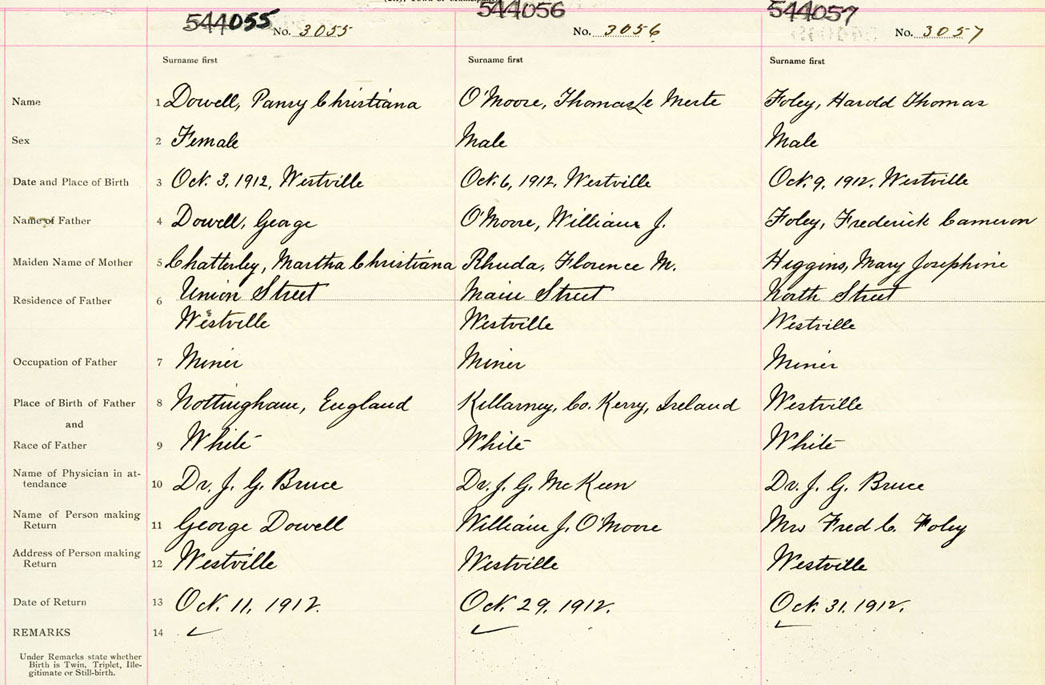 544055 No. 3055 544056 No. 3056 544057 No. 3057
Surname first Surname first Surname first
Name 1 Dowell, Pansy Christiana O'Moore, Thomas Le Merte Foley, Harold Thomas
Sex 2 Female Male Male
Date and Place of Birth 3 Oct. 3, 1912, Westville Oct. 6, 1912, Westville Oct. 9, 1912, Westville
Name of Father 4 Dowell, George O'Moore, William J. Foley, Frederick Cameron
Maiden Name of Mother 5 Chatterley, Martha Christiana Rhuda, Florence M. Higgins, Mary Josephine
Residence of Father 6 Union Street Main Street North Street
Westville Westville Westville
Occupation of Father 7 Miner Miner Miner
Place of Birth of Father 8 Nottingham, England Killarney, Co. Kerry, Ireland Westville
and
Race of Father 9 White White White
Name of Physician in at-
tendance 10 Dr. J. G. Bruce Dr. J. G. McKeen Dr. J. G. Bruce
Name of Person making
Return 11 George Dowell William J. O'Moore Mrs Fred C. Foley
Address of Person making
Return 12 Westville Westville Westville
Date of Return 13 Oct. 11, 1912. Oct. 29, 1912. Oct. 31, 1912.
REMARKS 14
Under Remarks state whether
Birth is Twin, Triplet, Ille-
gitimate or Still-birth.